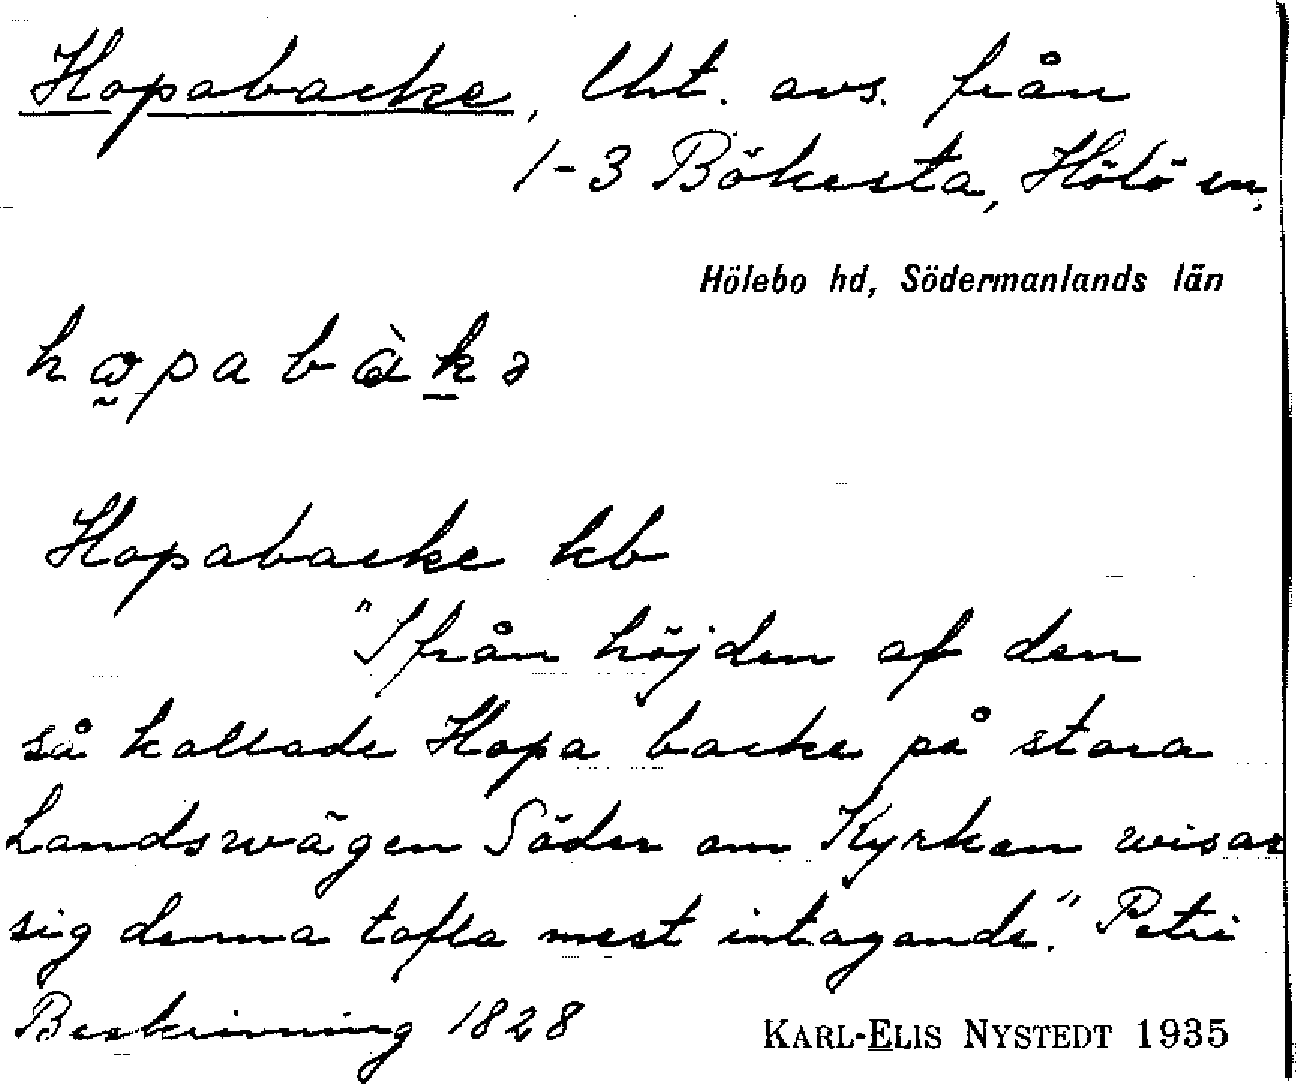 Hopabacke, Uht. avs. från
1-3 Bökesta, Hölö sn,
Hölebo hd, Södermanlands län
hopabàkə
Hopabacke kb
"Ifrån höjden af den
så kallade Hopa backe på stora
Landswägen Söder om Kyrkan wisar
sig denna tafla mest intagande." Petri
Beskrivning 1828
KARL-ELIS NYSTEDT 1935